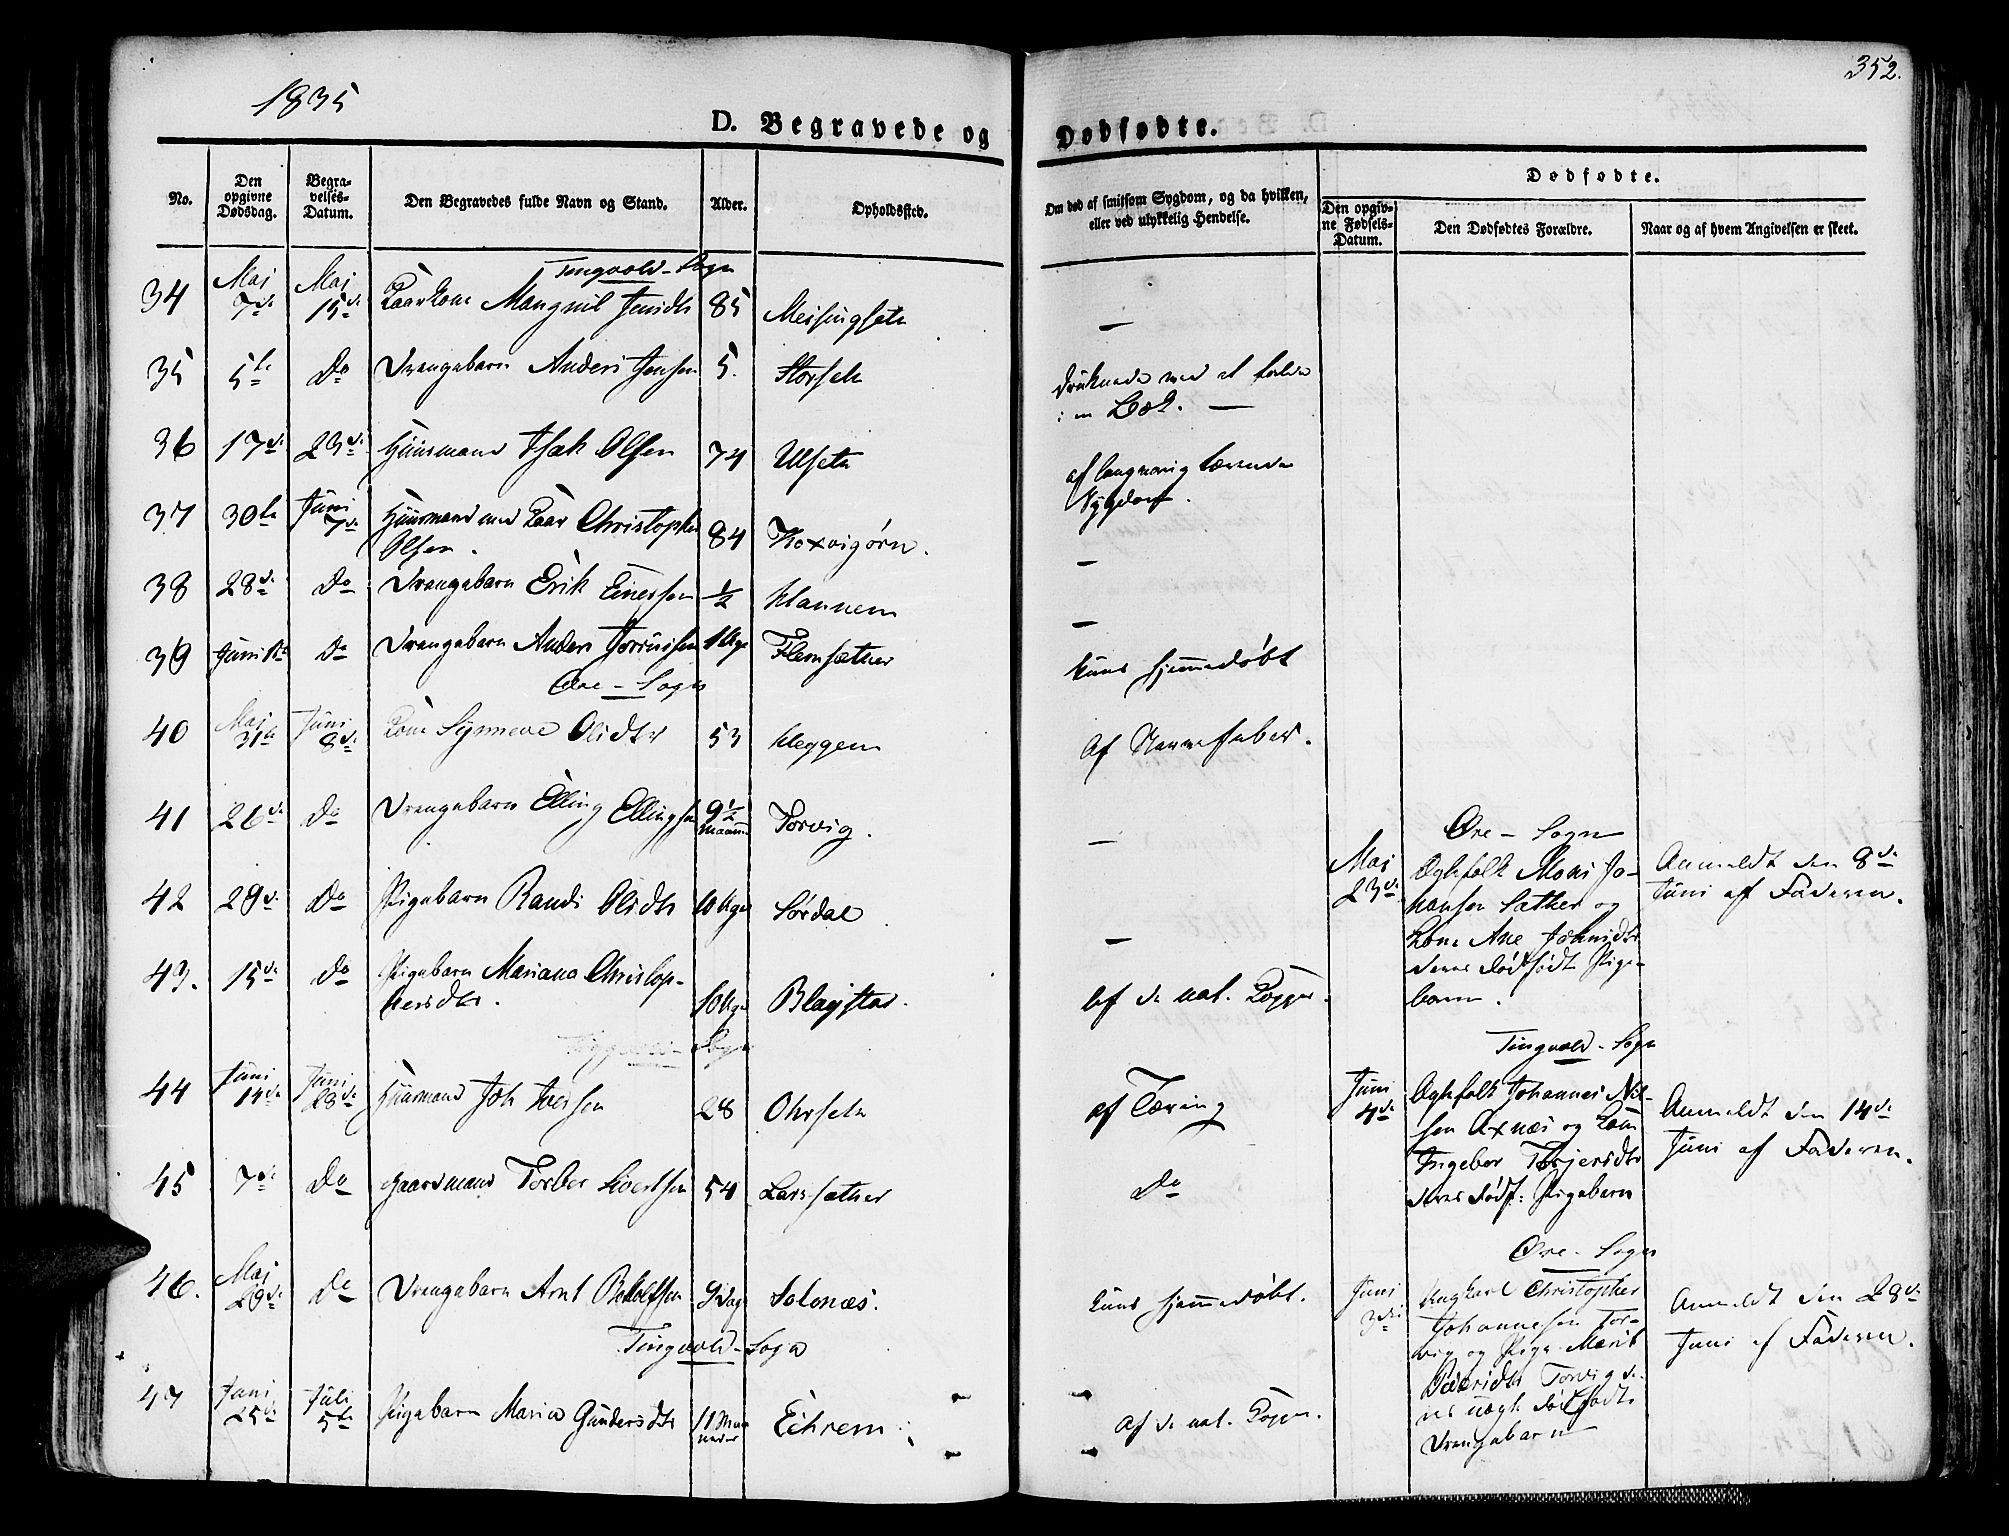 1835
352.
D. Begravede og Dødfødte.
No.
Den opgivne Dødsdag.
Begravelses-Datum.
Den Begravedes fulde Navn og Stand.
Alder.
Opholdssted.
Om død af smitsom Sygdom, og da hvilken, eller ved ulykkelig Hendelse.
Dødfødte.
Den opgivne Fødsels-Datum.
Den Dødfødtes Forældre.
Naar og af hvem Angivelsen er skeet.
Tingvold-Sogn
34 Maj 7de Maj 15de Jensdtr 85 Meisingseth —
35 5te Do Drengebarn Anders Jensen 5. Storseth druknede ved at falde
i en Bæk. —
36 17de 23de Huusmand Isak Olsen 74 Ulseth af langvarig tærende
Sygdom.
37 30te Juni 7de Huusmand med Kaar Christopher
Olsen. 84 —
38 28de Do Drengebarn Erik Einersen ½ —
39 Juni 1te Do Drengebarn Anders 1 Uge Flemsæther kuns hjemmedøbt
Øre-Sogn
40 Maj 31te Juni 8de Kone Synneve Olsdtr 53 Kleggen af Nervefeber.
41 26de Do Drengebarn Elling Ellingsen 9½ Torvig. —
42 29de Do Pigebarn Randi Olsdtr 10 Uger Sørdal —
43. 15de Do Pigebarn Mariana Christop-
hersdtr. 10 Uger af de nat. Kopper.
Tingvold-Sogn
44 Juni 14de Juni 28de Huusmand Joh Iversen 28 Ohrseth af Tæring
45 7de Do Gaardmand Torber Sivertsen 54 Larssæther Do
46. Maj 29de Do Drengebarn Arnt 9 Dage Solenæs. kuns hjemmedøbt.
Tingvold-Sogn
47 Juni 25de Juli 5te Pigebarn Maria Gundersdtr 11 Maa
neder Eikrem af de nat. Kopper.
Øre-Sogn
Maj 23de Ægtefolk Mons Jo-
hansen Sæther og
Kone Ane Johnsdtr
deres dødfødt Pige-
barn.
Anmeldt den 8de
Juni af Faderen.
Tingvold-Sogn
Juni 4de Ægtefolk Johannes Nil-
sen Axnæs og Kone
Ingebor Torjersdtr
deres dødf: Pigebarn
Anmeldt den 14de
Juni af Faderen.
Øre-Sogn
Juni 3die Ungkarl Christopher
Johannesen Tor-
vig og Pige Marit
Pedersdtr Torvig de-
res uægte dødfødte
Drengebarn
Anmeldt den 28de
Juni af Faderen.